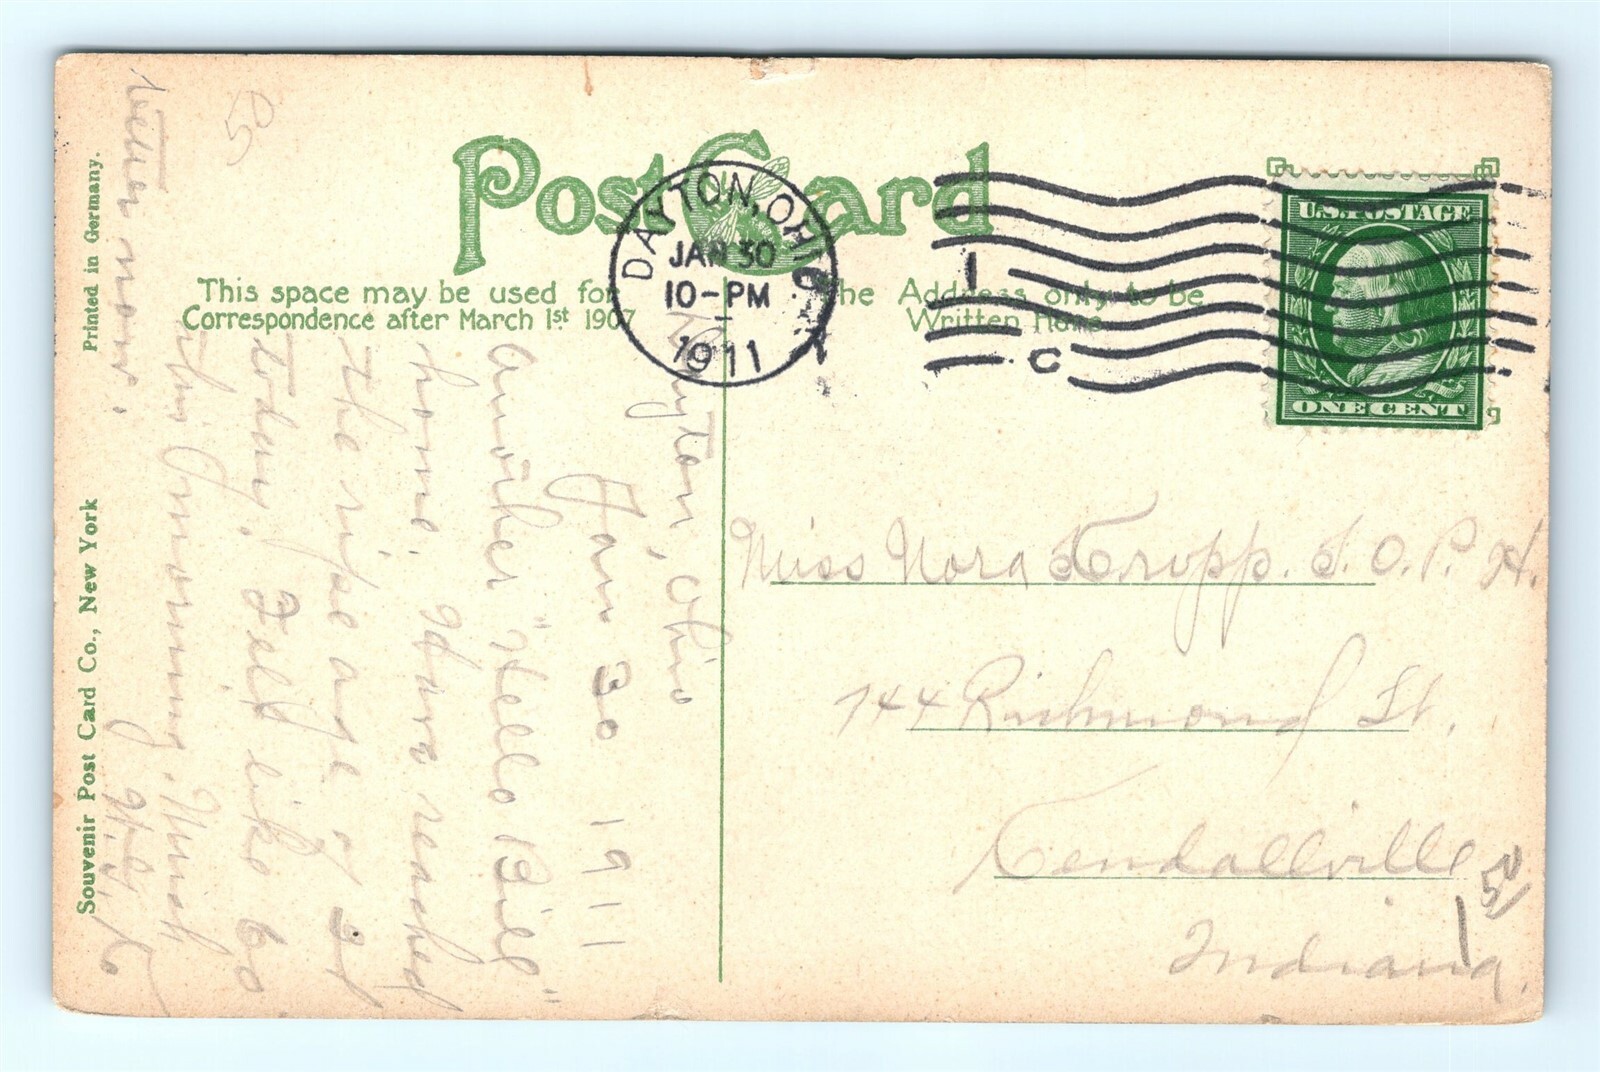 Post Card
This space may be used for
Correspondence after March 1st 1907
The Address only to be
Written Here
DAYTON, OHIO
JAN 30
10-PM
1911
1
C
U.S. POSTAGE
ONE CENT
Printed in Germany.
Souvenir Post Card Co., New York
50
Dayton, Ohio
Jan 30 1911
Another "Hello Bill"
home. Have reached
the ripe age of 21
today. Felt like 60
this morning. Much
better now.
Miss Nora Kropp. I. O. P. H.
744 Richmond St.
Kendallville
Indiana.
1 50